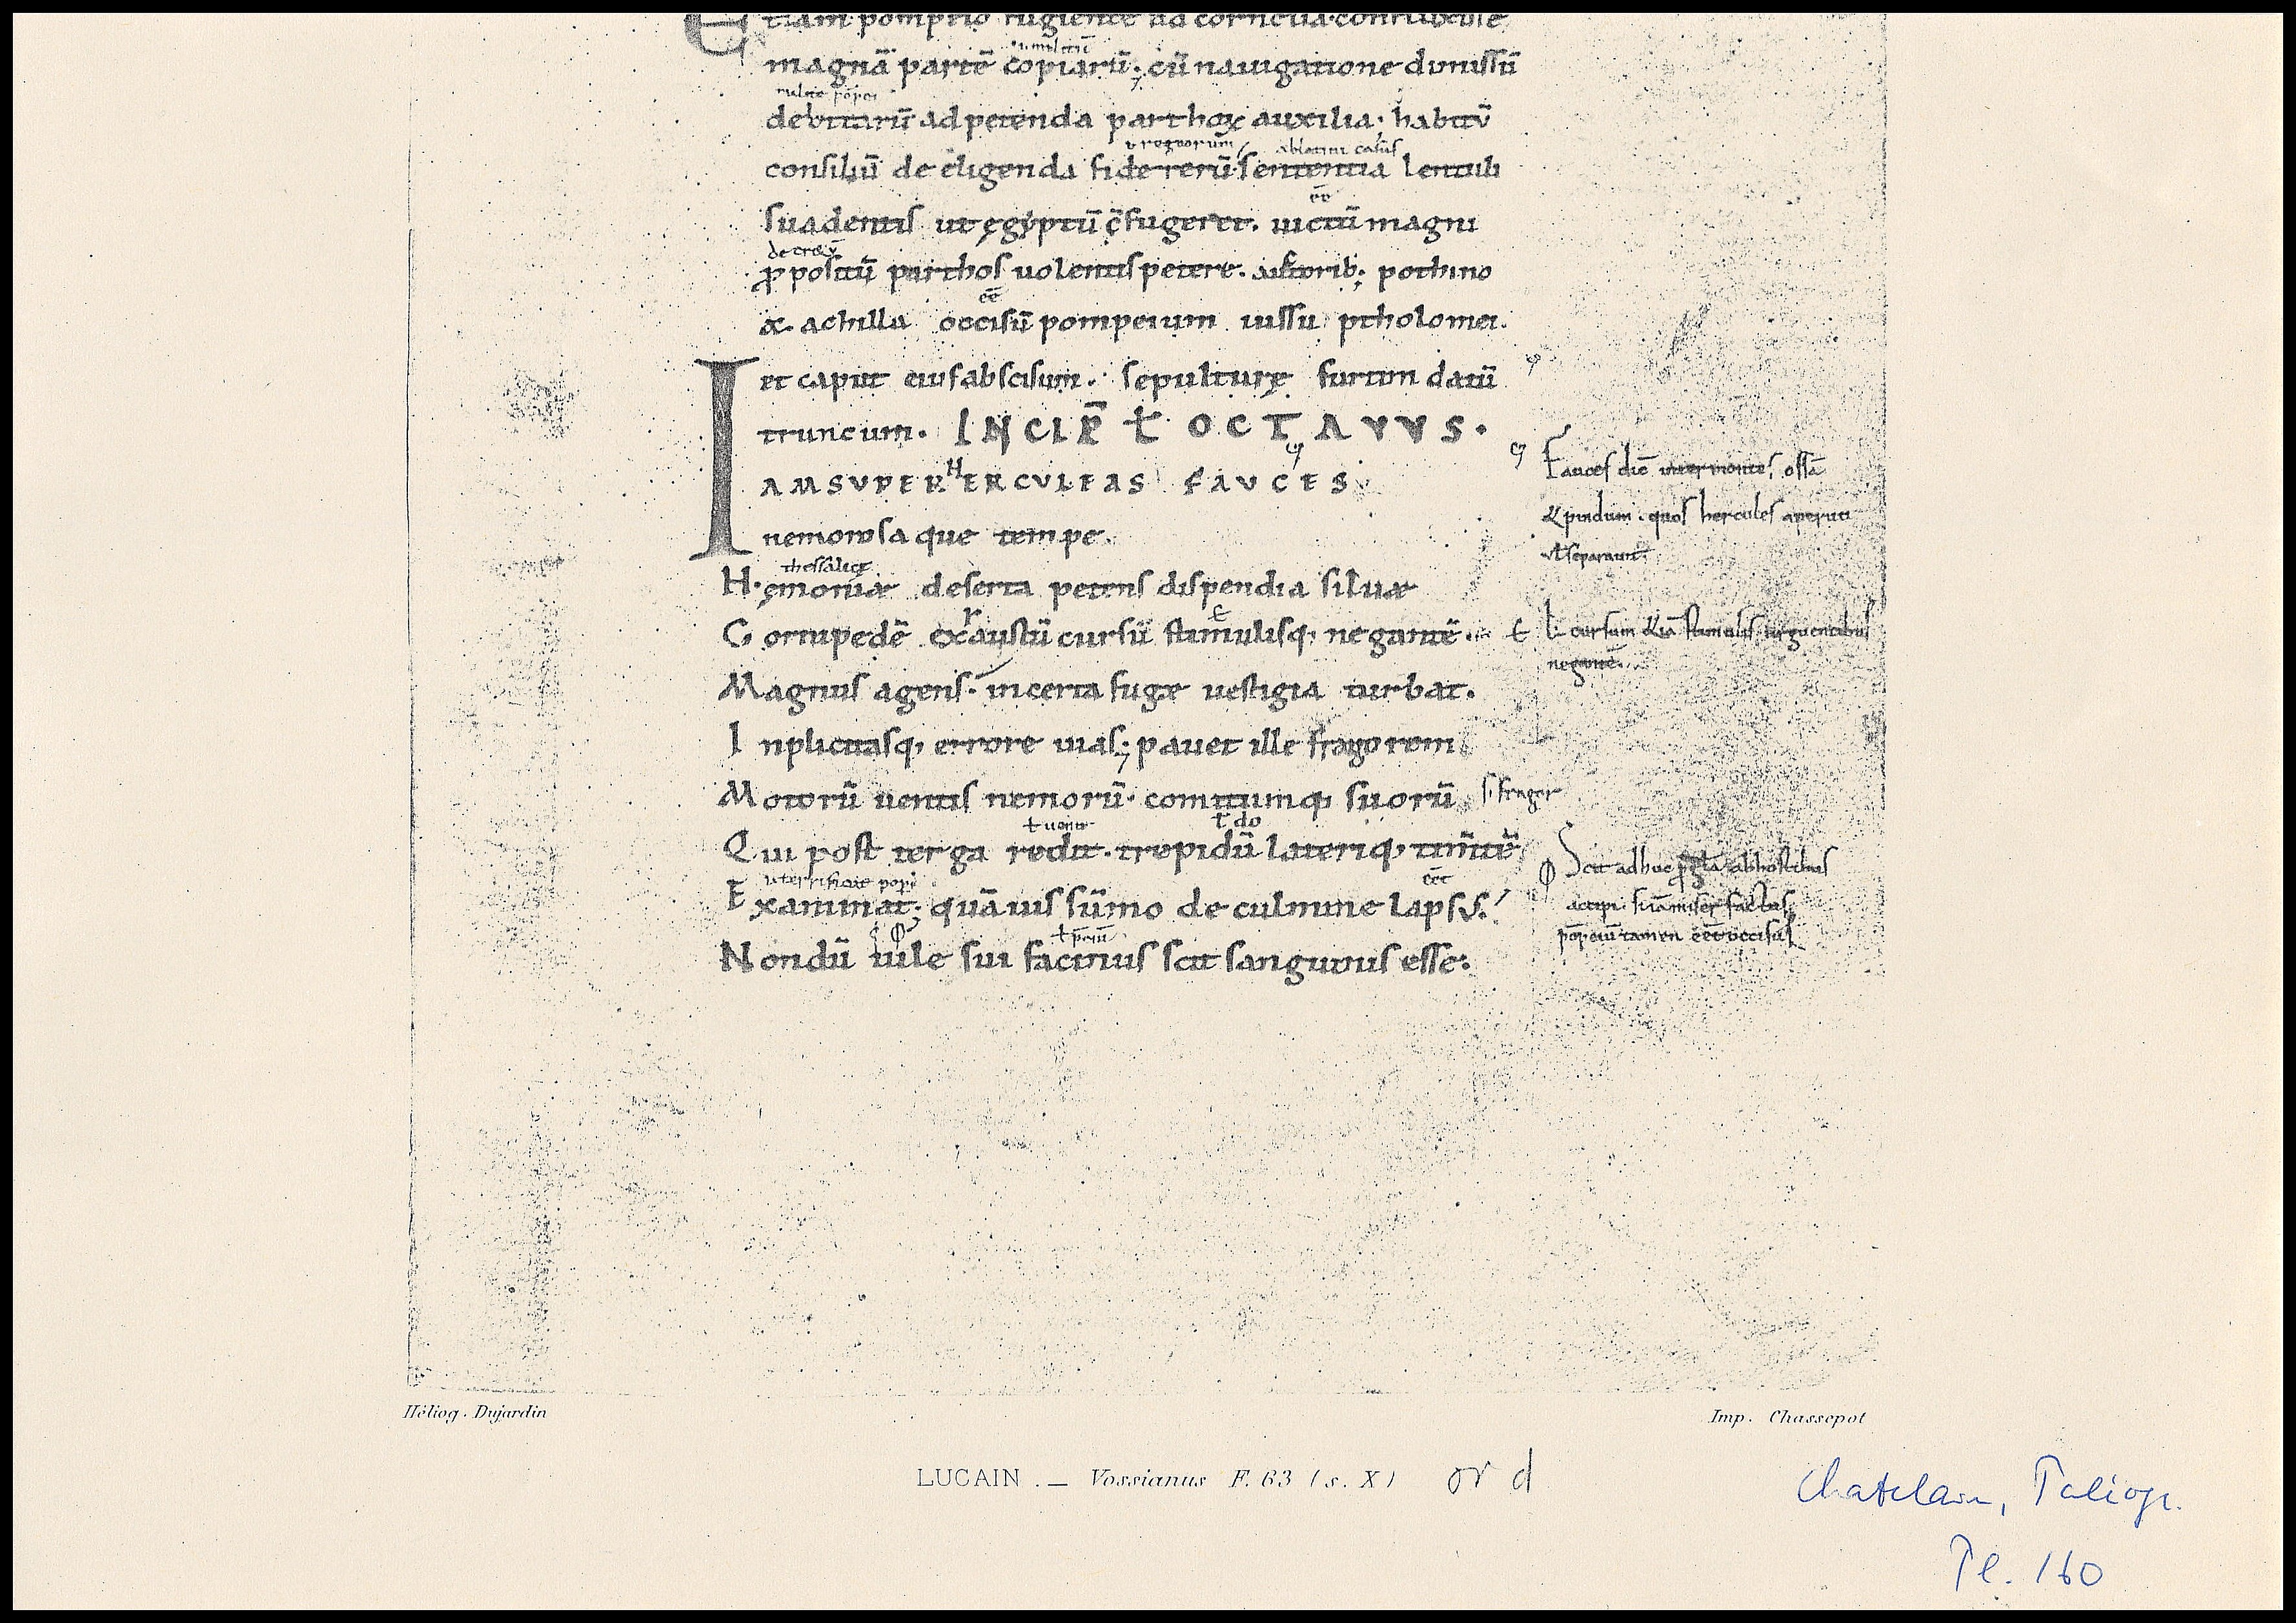 magnā partē copiarū; cū nauigatione dimissū
debitarū ad petenda parthoꝝ auxilia; habitū
u regnorum ablatiui casus
consiliū de eligenda fide rerū. sententia lentuli
suadentis ut ęgyptū fugeret. uictū magni
decretū
ꝓpositū parthos uolentis petere. auctorib; pothino
eē
& achilla occisū pompeium iussu ptholomei.
et caput eius abscisum. sepulturę furtim datū
truncum. INCIP̄ Ł OCTAVVS.
IAM SUPER HERCULEAS FAUCES
nemorosa que tempe.
thessalicę
H. ęmoniae deserta petens dispendia siluae
Cornipedē exaustū cursū stimulisq; negantē.
Magnus agens. incerta fugae uestigia turbat.
Inplicitasq; errore uias; pauet ille fragorem
Motorū uentis nemorū. comitumq; suorū
ł do
Qui post terga redit. trepidū lateriq; timētē
Exanimat; quāuis sūmo de culmine lapsus.
Nondū uile sui facinus scit sanguinis esse;
Fauces dic̄ inter montes, ossā
& pindum. quos hercules aperuit
ł separauit.
ł cursum &iā stimulis urguentibus
negantē.
s. fragor
Scit adhuc
pōpeiū tamen
Héliog. Dujardin
Imp. Chassepot
LUCAIN. — Vossianus F. 63 (s. X) or d
Chatelain, Paléogr.
Pl. 160